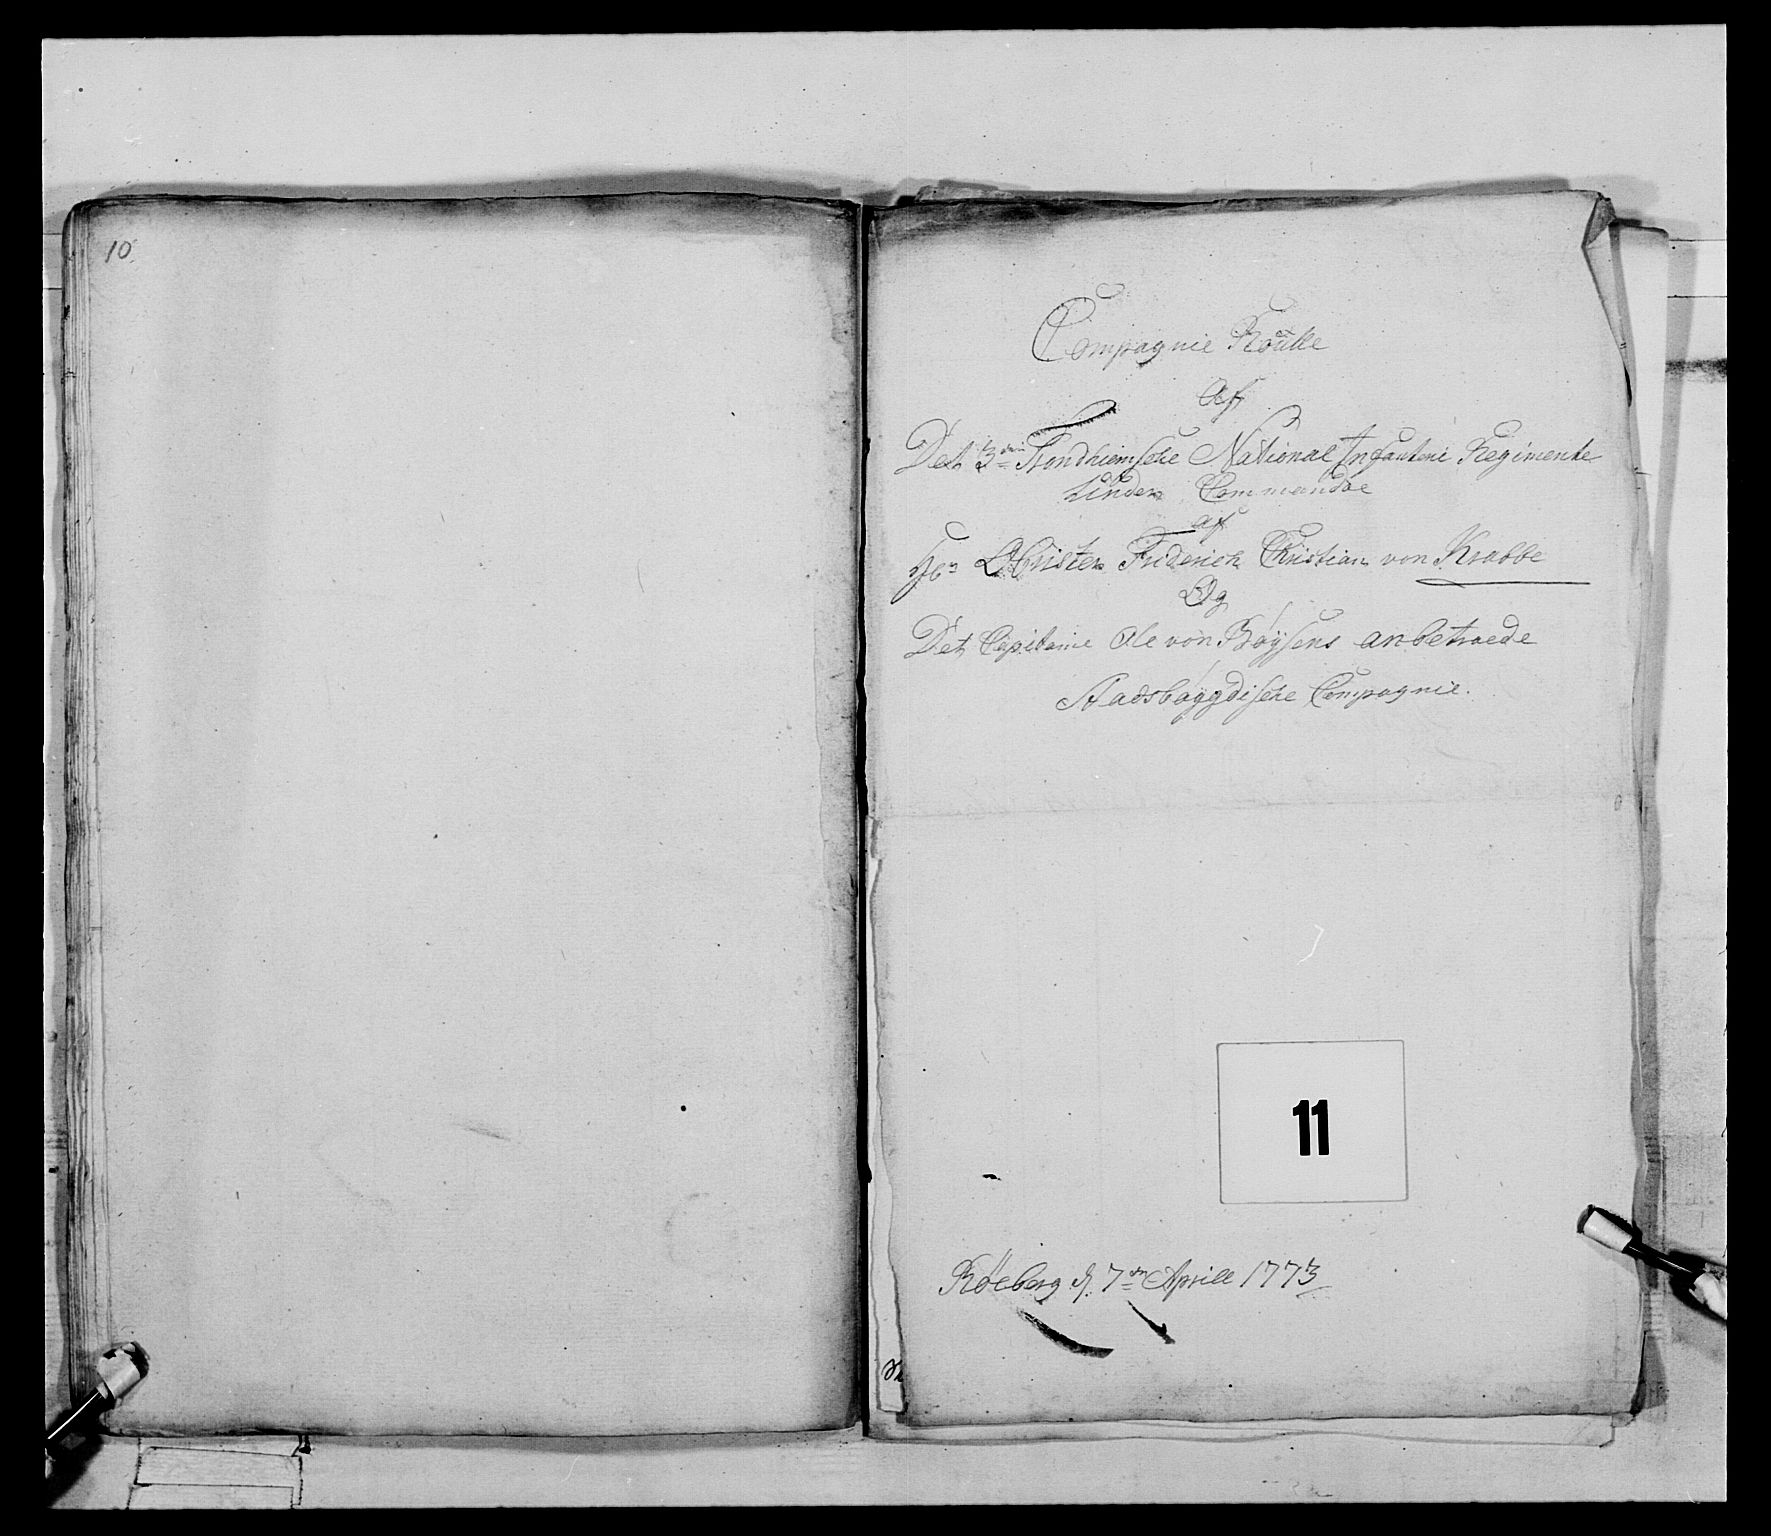 10
Compagnie Roulle
Af
Det 3die Trondhiemsche National Infanterie Regimente
Under Commandoe
af
Hr Obrister Friderich Christian von Krabbe
Og
Det Capitaine Ole von Bøysens anbetroede
Stadsbøygdische Compagnie.
11
Røeberg d. 7de Aprill 1773